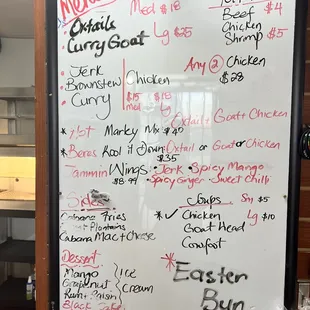 Med $18
Oxtails
Curry Goat
Lg $25
Beef $4
Chicken
Shrimp $5
Any 2 Chicken
$28
Jerk
Brownstew Chicken
Curry
$15 $18
med Lg
Oxtail Goat + Chicken
* Hot Marley Mix $40
* Beres Kool it Down: Oxtail or Goat or Chicken
$35
Jammin Wings: Jerk • Spicy Mango
$8.99 • Spicy Ginger • Sweet Chilli
Sides
Cabana Fries
Plantains
Cabana Mac + Cheese
Soups Sm $5
* ✓ Chicken Lg $10
Goat Head
Cowfoot
Dessert
Mango
Grapenut
Rum + Raisin
Ice
Cream
Black
* Easter
Bun